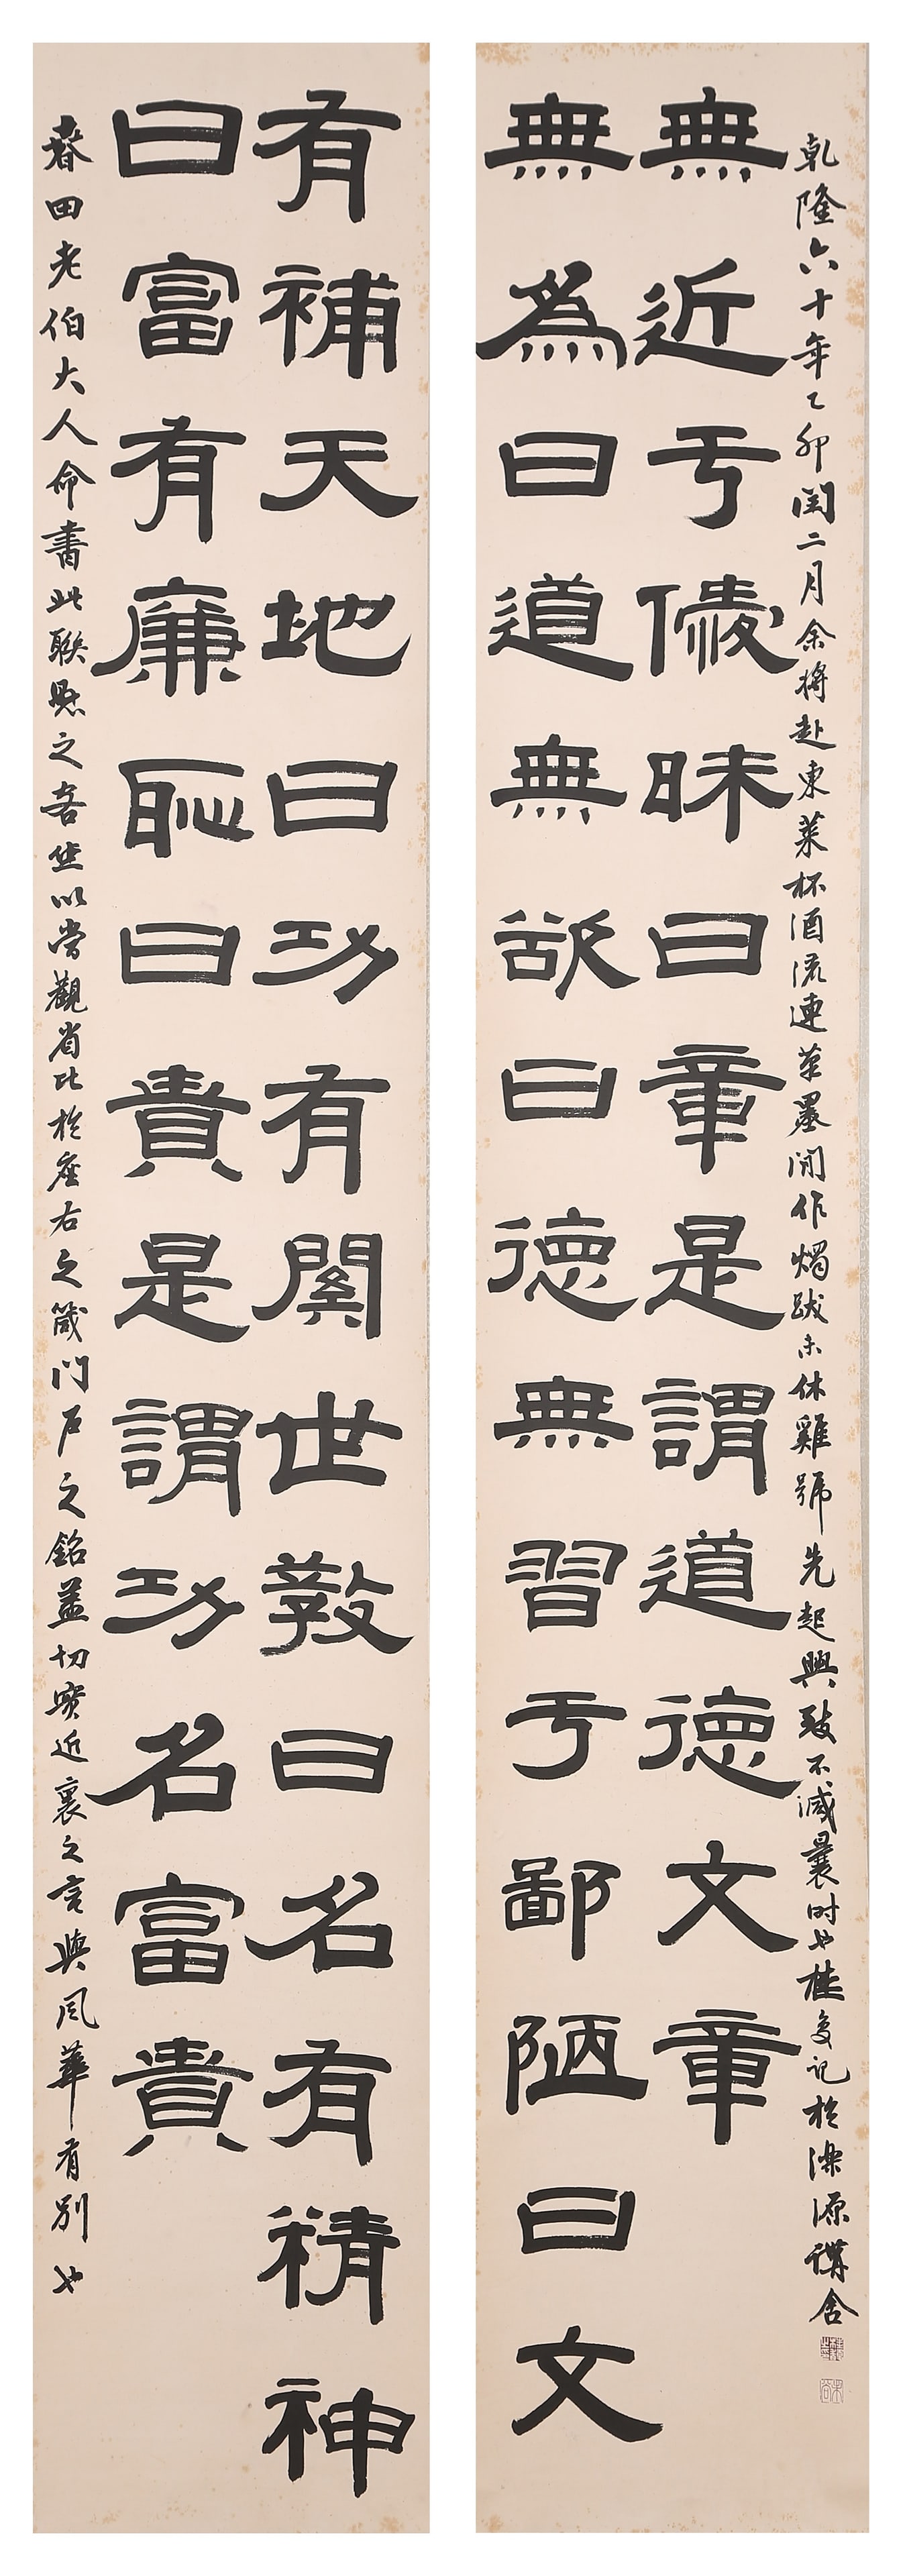 有補天地曰功有關世教曰名有精神
曰富有廉恥曰貴是謂功名富貴
春田老伯大人命書此聯懸之客坐以當觀省比於座右之箴門戶之銘蓋切實近裏之言與風華有別也
無為曰道無欲曰德無習于鄙陋曰文
無近于僾昧曰章是謂道德文章
乾隆六十年乙卯閏二月余將赴東萊杯酒流連筆墨閒作燭跋未休雞號先起興致不減曩時也桂馥記於濼源講舍